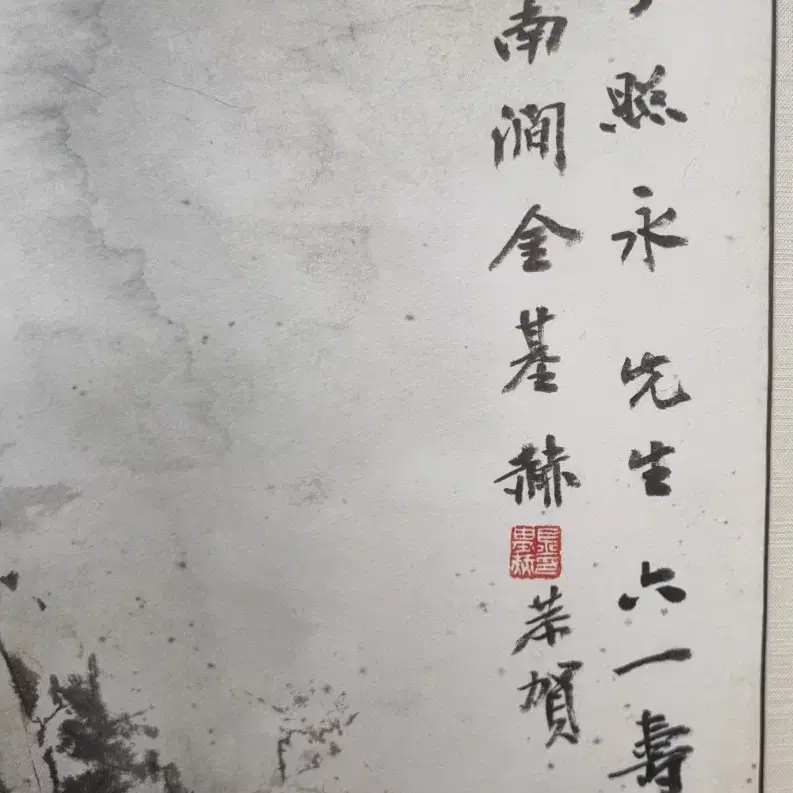 照永先生六一壽
南澗金基赫
恭賀